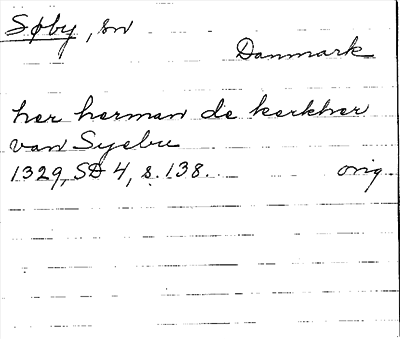 Søby, sn
Danmark
her herman de kerkher
van Syebu
1329, SD 4, s. 138. orig